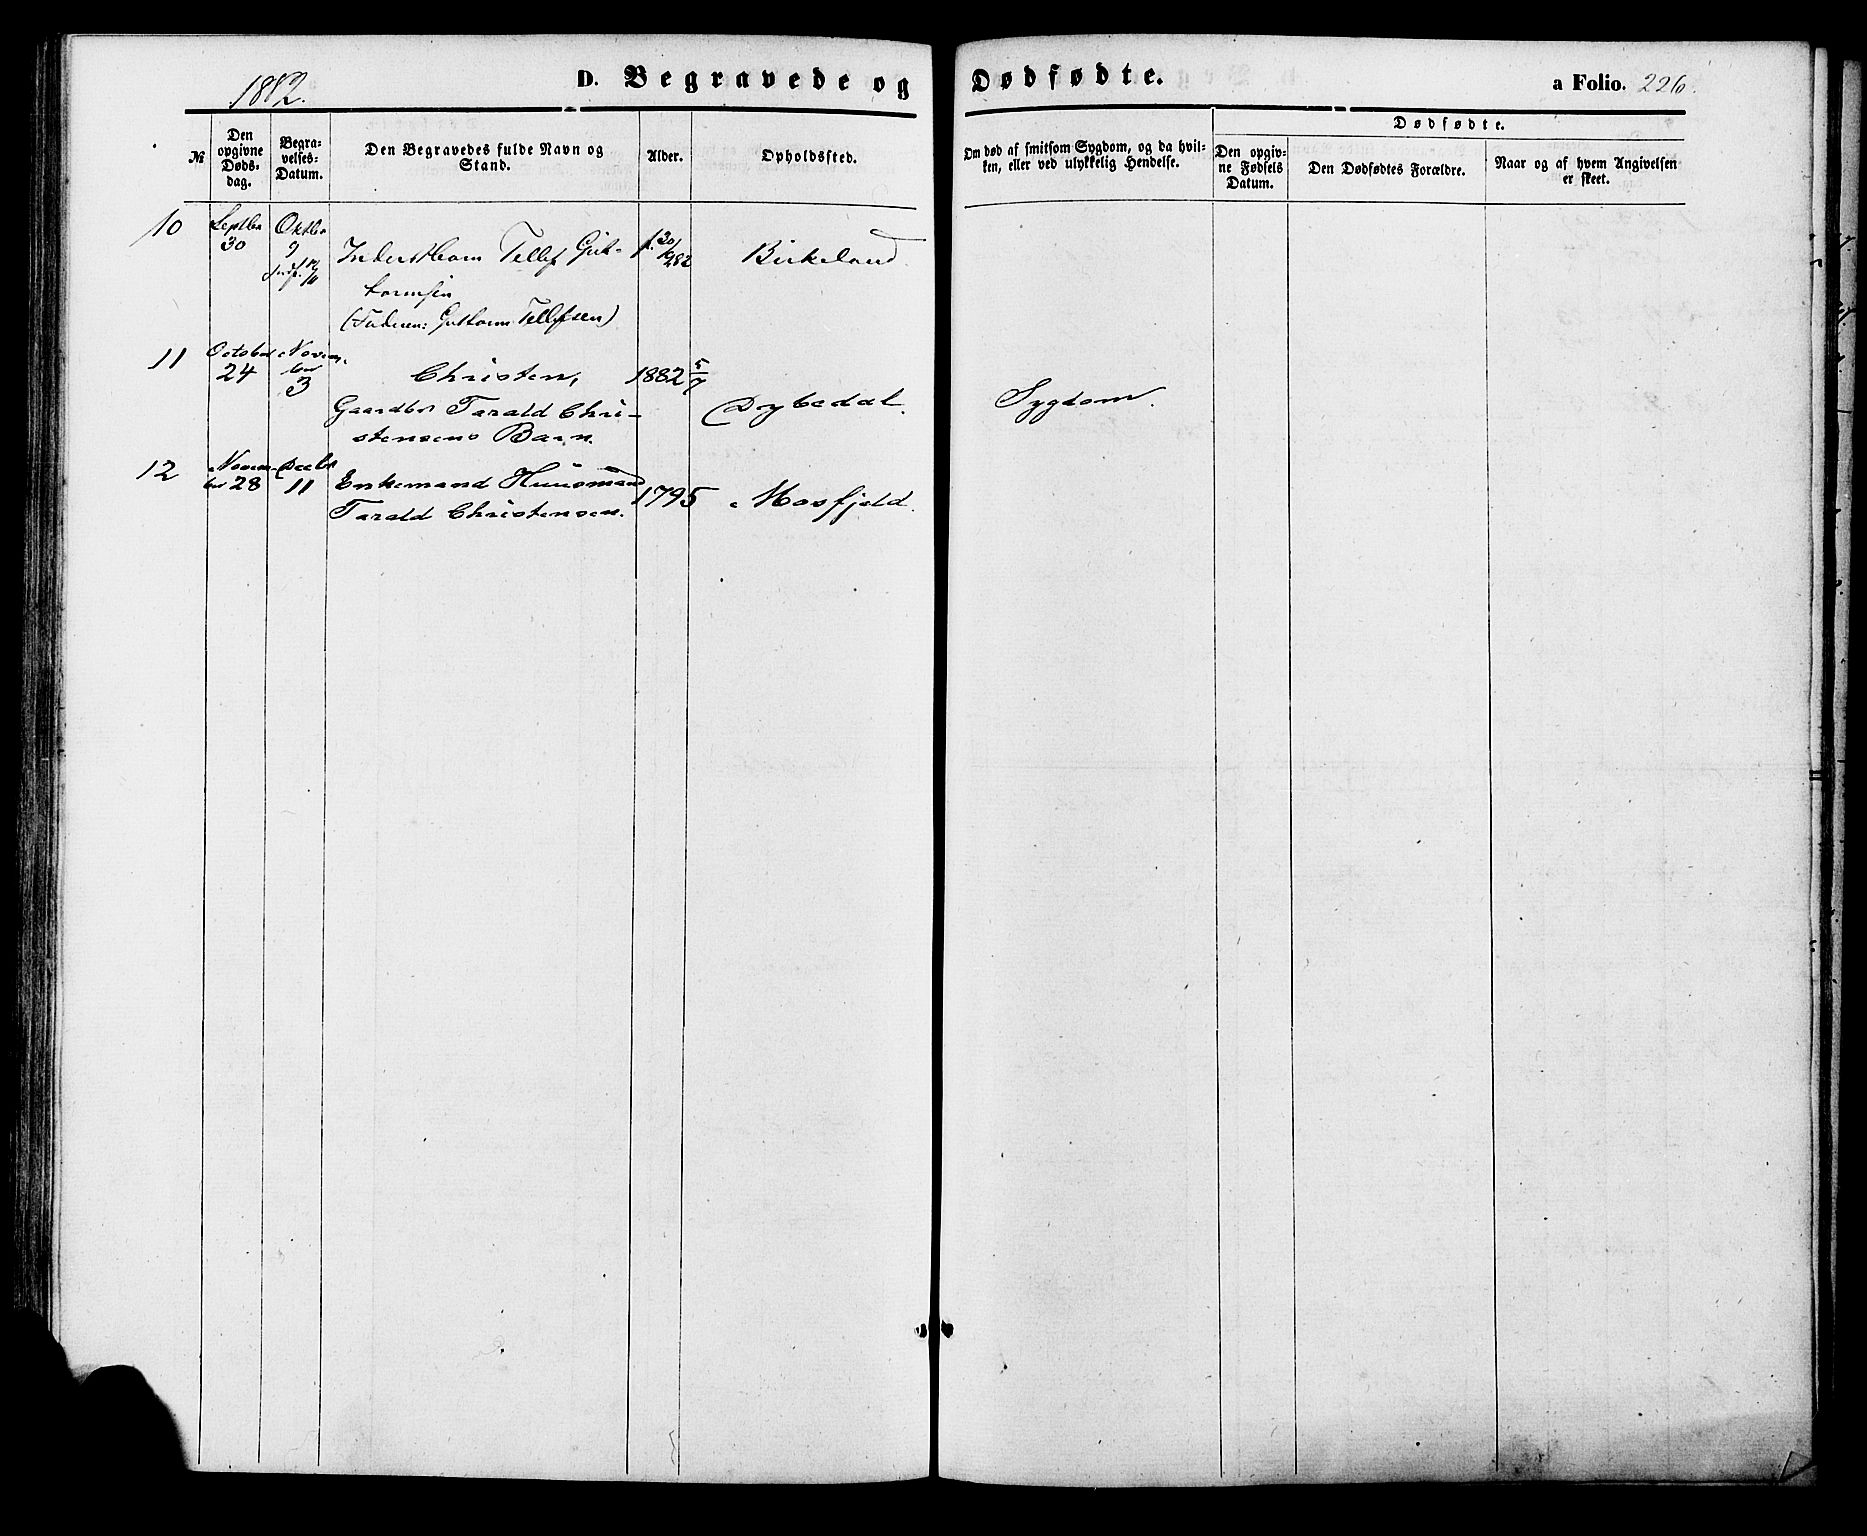 1882.
D. Begravede og Dødfødte.
a Folio. 226.
№
Den opgivne Døds-dag.
Begra-velses-Datum.
Den Begravedes fulde Navn og Stand.
Alder.
Opholdssted.
Om død af smitsom Sygdom, og da hvil-
ken, eller ved ulykkelig Hendelse.
Dødfødte.
Den opgiv-ne Fødsels Datum.
Den Dødfødtes Forældre.
Naar og af hvem Angivelsen er skeet.
10
Septbr 30
Oktbr 9
Inderstbarn Tellef Gut-
tormsen
(Faderen: Guttorm Tellefsen)
f. 30/9 82
Birkeland.
11
October 24
Novem-
ber
3
Christen,
Gaardbr Tarald Chri-
stensens Barn.
1882 5/7
Dybedal.
Sygdom.
12
Novem-
ber 28
Decbr
11
Enkemand Huusmand
Tarald Christensen.
1795
Mosfjeld.